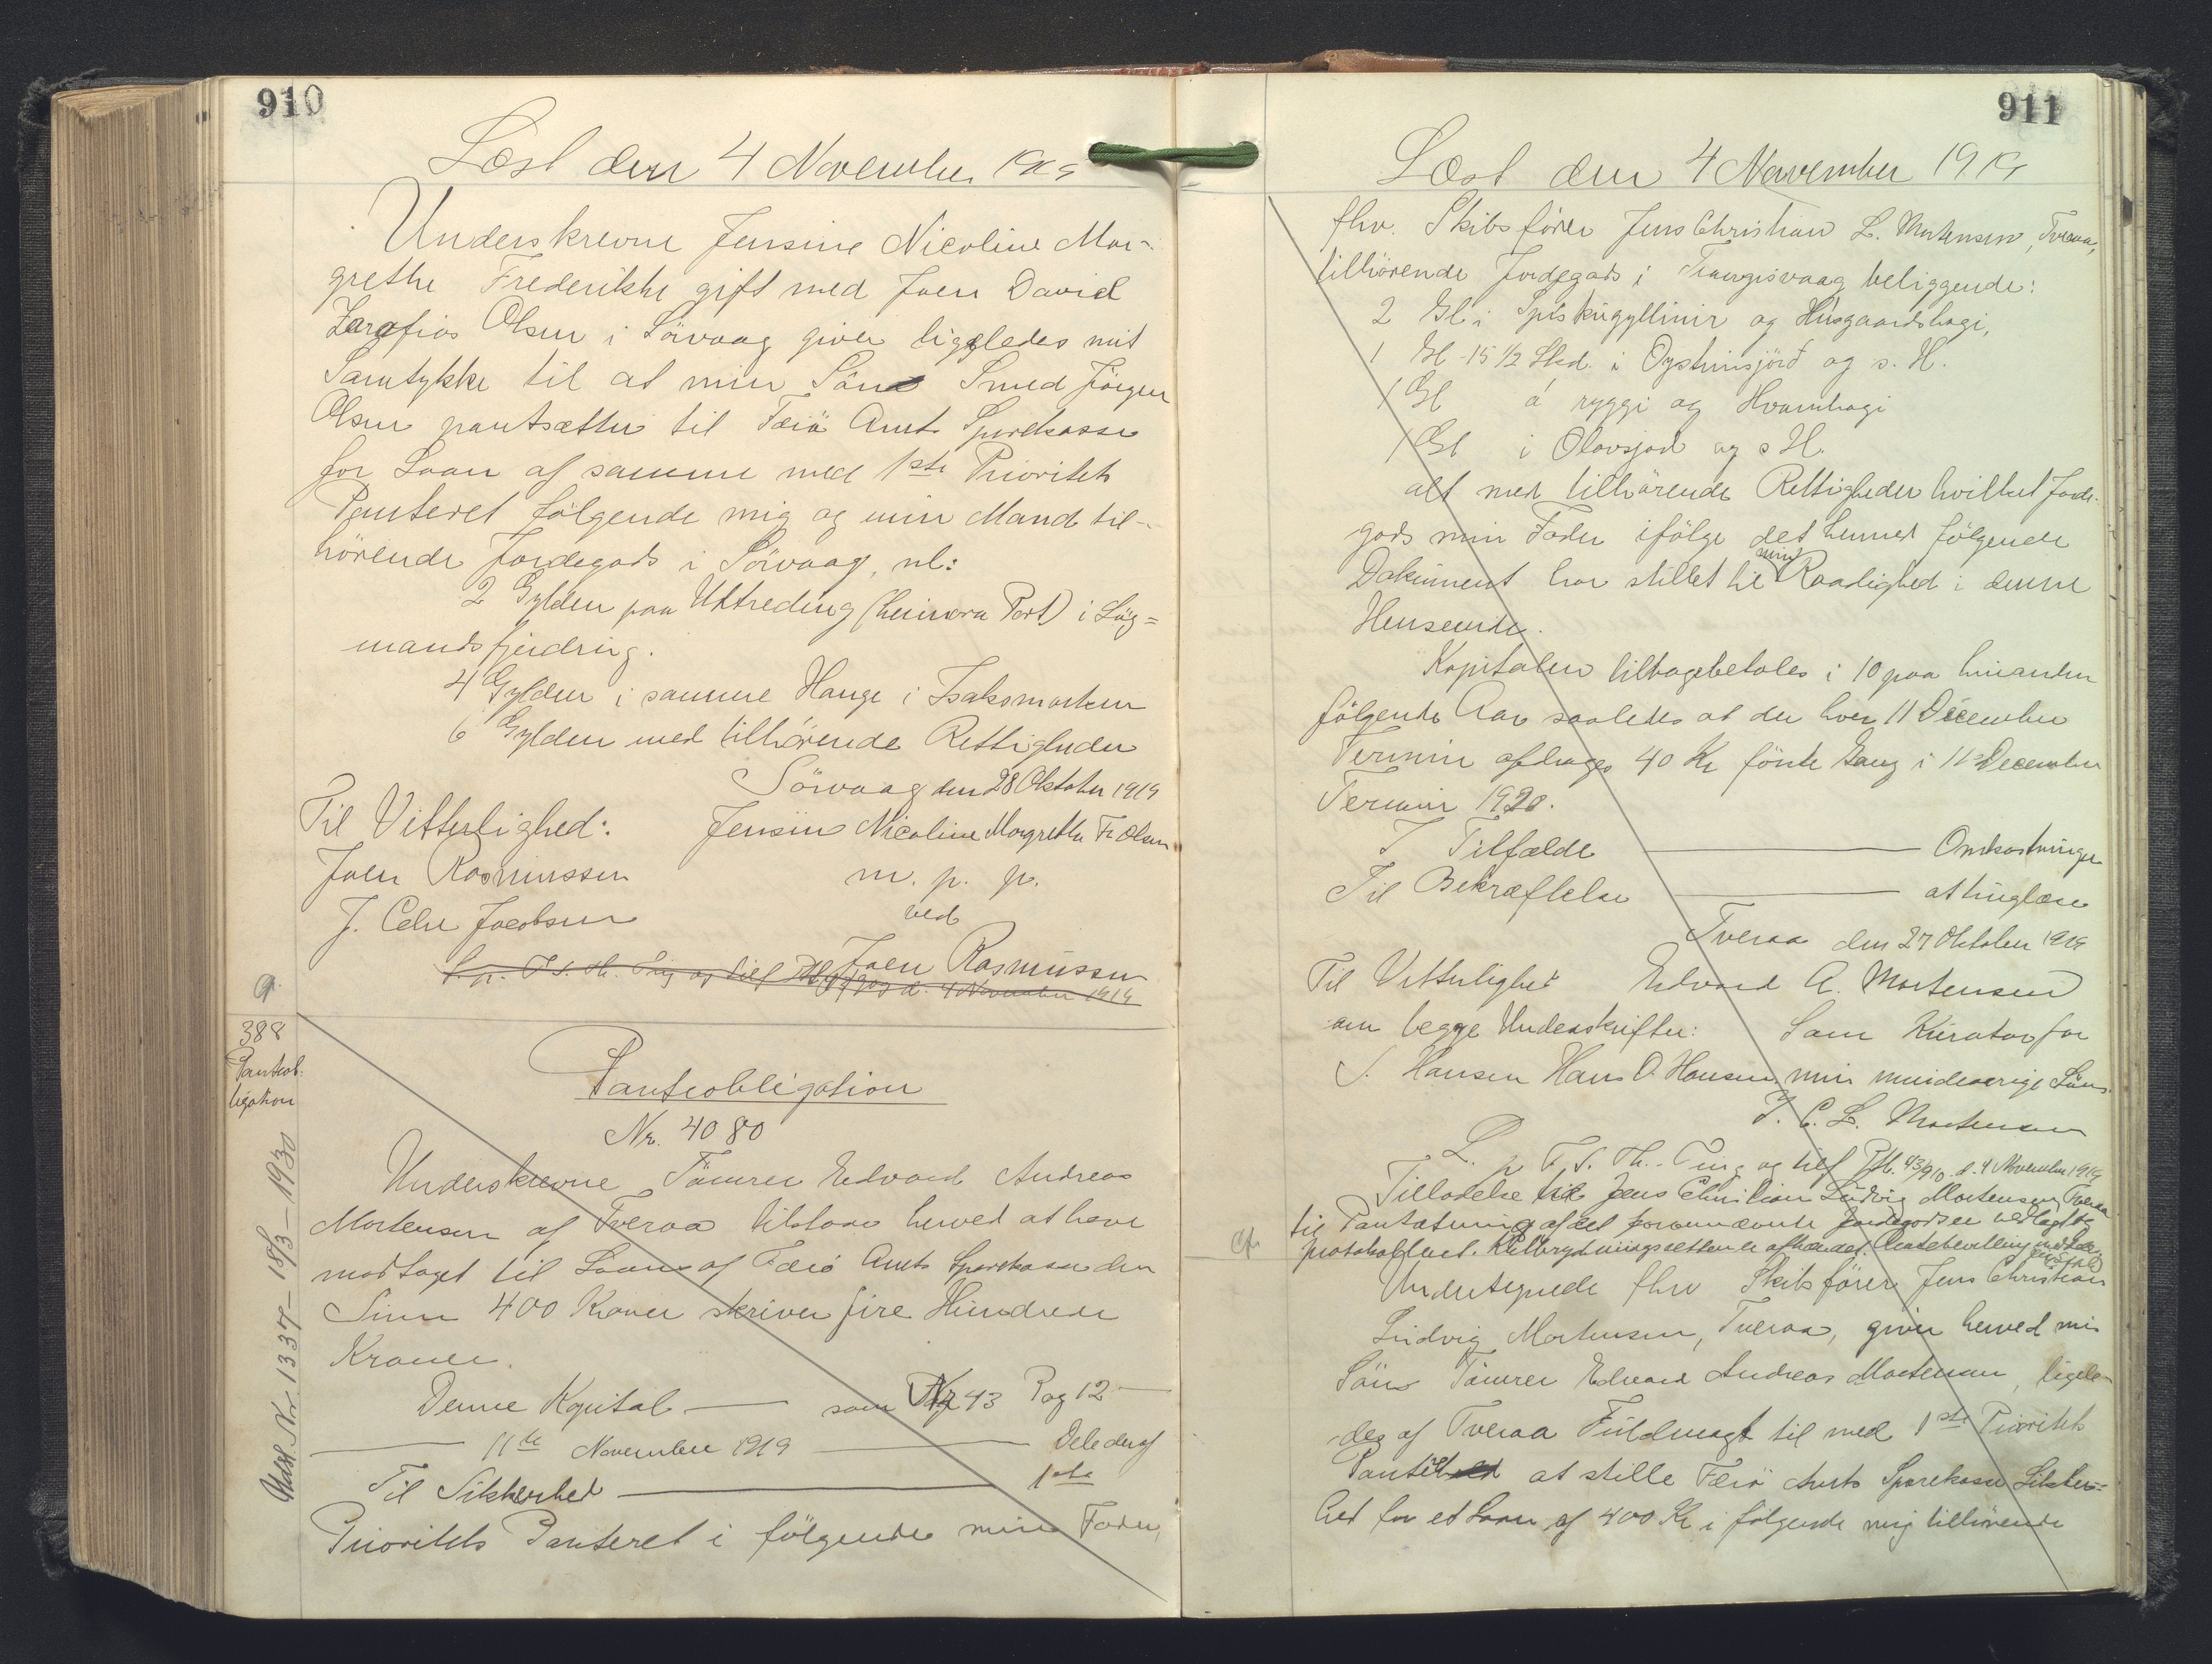 910
Læst den 4 November 1919
Underskrevne Jensine Nicoline Mar-
grethe Frederikke gift med Joen David
Zarafias Olsen i Sörvaag giver ligeledes mit
Samtykke til at min Sön Smed Jörgen
Olsen pantsætter til Færö Amts Sparekasse
for Laan af samme med 1ste Prioritets
Panteret følgende mig og min Mand til-
hörende Jordegods i Sörvaag, nl:
2 Gylden paa Uttreding (heimara Part) i Lög=
mandsfjerdring.
4 Gylden i samme Hauge i Isaksmarken
6 Gylden med tilhörende Rettigheder
Sörvaag den 28 Oktober 1919
Til Vitterlighed: Jensine Nicoline Margrethe Fr. Olsen
Joen Rasmussen m. p. p.
J. Chr. Jacobsen ved
Joen Rasmussen
L. p. F. S. Th. Ting og tilf. d. 4 November 1919
388
Panteob-
ligation
Udsl. Nr. 1337 – 18/3 – 1930
Panteobligation
Nr. 4080
Underskrevne Tömrer Edvard Andreas
Mortensen af Tveraa tilstaar herved at have
modtaget til Laans af Færö Amts Sparekasse den
Sum 400 Kroner skriver fire Hundrede
Kroner.
Denne Kapital — som Nr 43 Pag 12 —
— 11te November 1919 — Dele deraf
Til Sikkerhed — 1ste
Prioritets Panteret i følgende min Fader,
911
Læst den 4 November 1919
fhv. Skibsfører Jens Christian L. Mortensen, Tveraa,
tilhörende Jordegods i Trangisvaag beliggende:
2 Gl. i Spiskugyllinir og Húsgaardshagi,
1 Gl - 15 1/2 Skd. i Oystursjörd og s. H.
1 Gl á ryggi og Hvamhagi
1 Gl i Olavsjord og s H.
alt med tilhörende Rettigheder hvilket Jorde-
gods min Fader ifölge det hermed følgende
Dokument har stillet til min Raadighed i denne
Henseende.
Kapitalen tilbagebetales i 10 paa hinanden
følgende Aar saaledes at der hver 11 December
Termin afdrages 40 Kr förste Gang i 11 December
Termin 1920.
I Tilfælde — Omkostninger
Til Bekræftelse — at tinglæse
Tveraa den 27 Oktober 1919
Til Vitterlighed Edvard A. Mortensen
om begge Underskrifter: Som Kurator for
S. Hansen Hans D. Hansen min mindeaarige Söns
J. C. L. Mortensen
L. p F. S. Th. Ting og tilf Ptb. 43/910 d. 4 November 1919
Tilladelse til Jens Christian Ludvig Mortensen, Tveraa
til Pantsætning af det forannævnte Jordegods er vedlagt
protokolleret.
Undertegnede fhv Skibsfører Jens Christian
Ludvig Mortensen, Tveraa, giver herved min
Sön Tömrer Edvard Andreas Mortensen, ligele-
des af Tveraa Fuldmagt til med 1ste Prioritets
Panteret at stille Færö Amts Sparekasse Sikker=
hed for et Laan af 400 Kr i følgende mig tilhörende